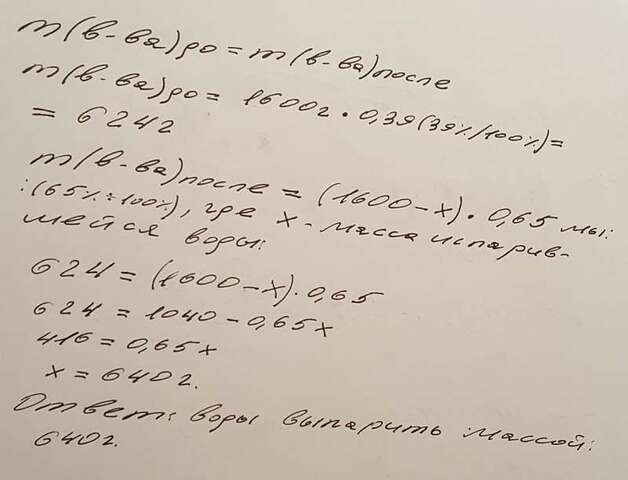 m(в-ва)до = m(в-ва)после
m(в-ва)до = 1600г • 0,39(39%/100%)=
= 624г
m(в-ва)после = (1600-x) • 0,65
:(65%÷100%), где x - масса испарив-
шейся воды:
624 = (1600-x)•0,65
624 = 1040 - 0,65x
416 = 0,65x
x = 640г.
Ответ: воды выпарить массой:
640г.